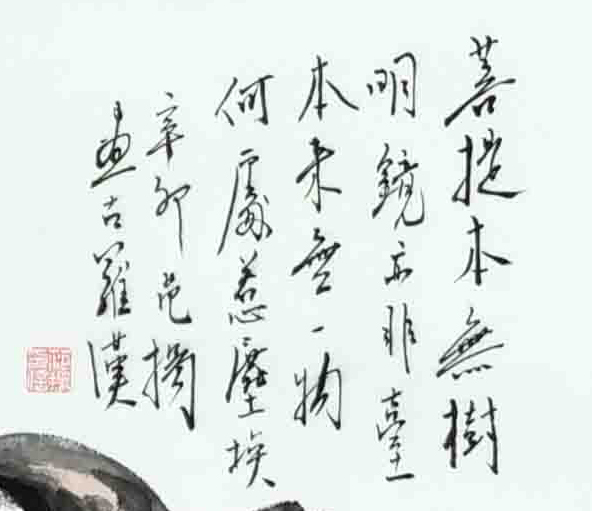 菩提本無樹
明鏡亦非臺
本來無一物
何處惹塵埃
辛卯
畫古羅漢